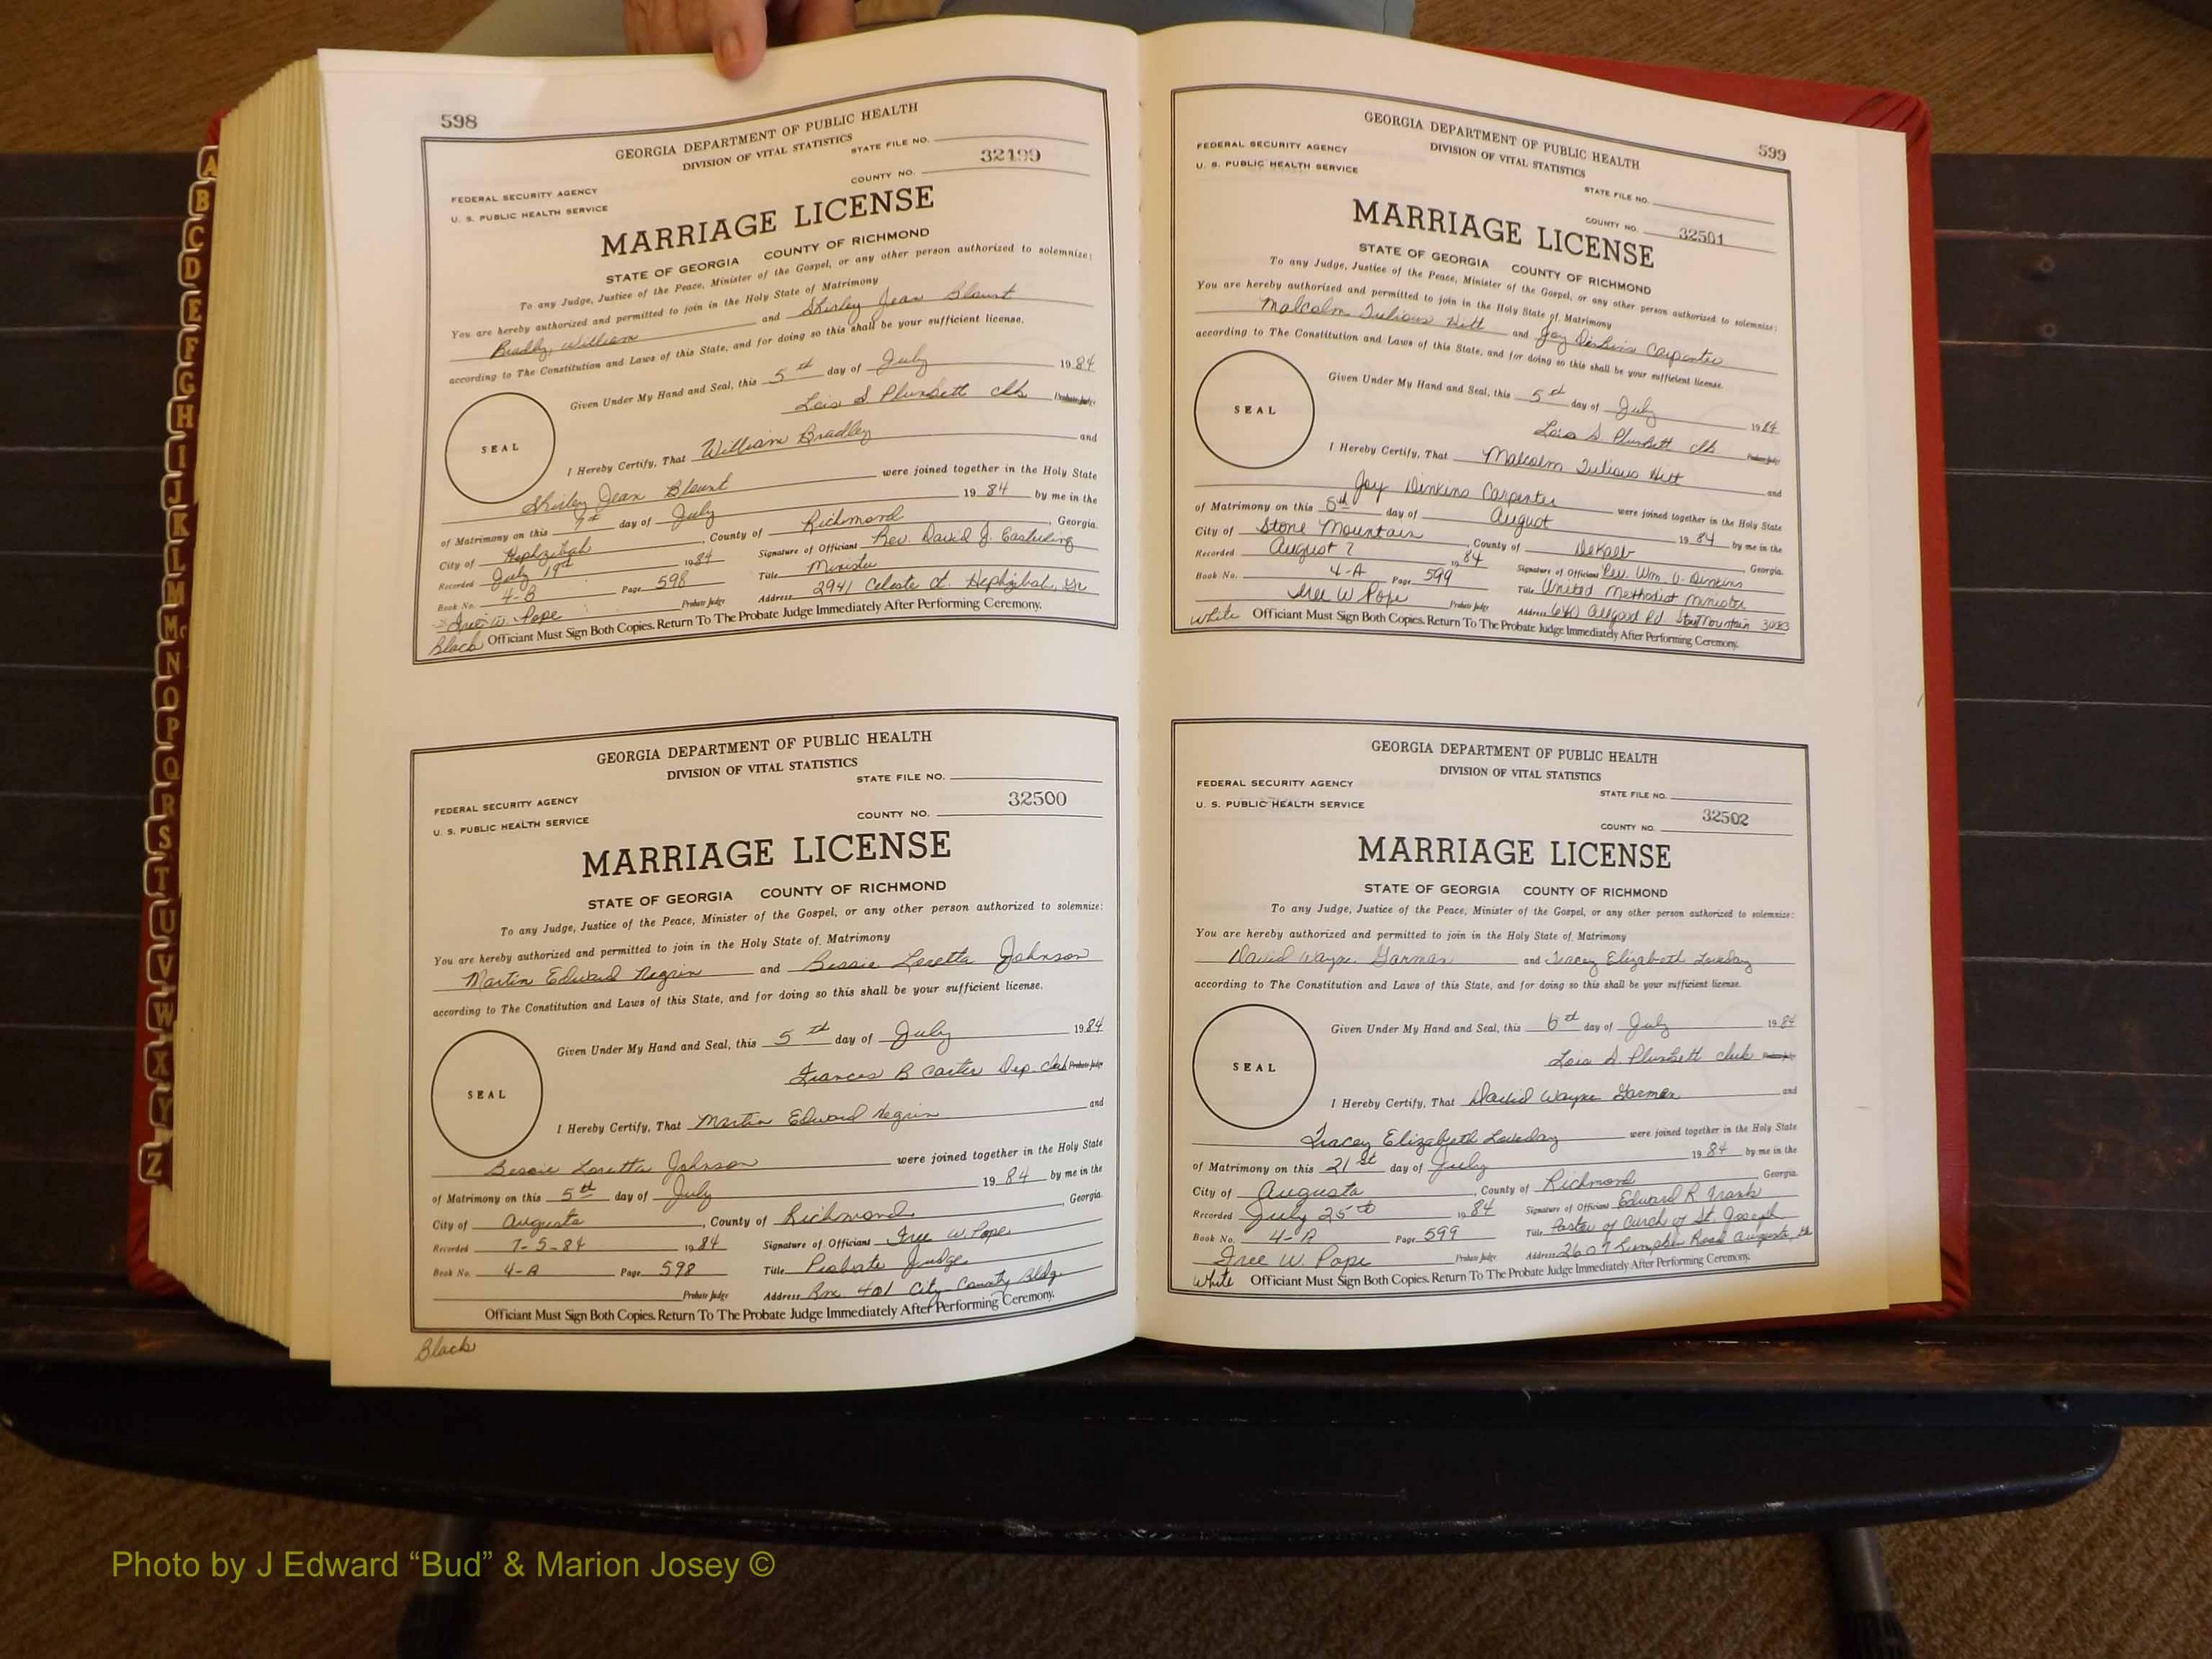 598
GEORGIA DEPARTMENT OF PUBLIC HEALTH
DIVISION OF VITAL STATISTICS
STATE FILE NO.
32499
FEDERAL SECURITY AGENCY
COUNTY NO.
U. S. PUBLIC HEALTH SERVICE
MARRIAGE LICENSE
STATE OF GEORGIA COUNTY OF RICHMOND
To any Judge, Justice of the Peace, Minister of the Gospel, or any other person authorized to solemnize:
You are hereby authorized and permitted to join in the Holy State of Matrimony
Bradley, William and Shirley Jean Blount
according to The Constitution and Laws of this State, and for doing so this shall be your sufficient license.
Given Under My Hand and Seal, this 5th day of July 1984
Lois S Plunkett clk Probate Judge
SEAL
I Hereby Certify, That William Bradley and
Shirley Jean Blount were joined together in the Holy State
of Matrimony on this 7th day of July 1984 by me in the
City of Hephzibah, County of Richmond, Georgia.
Recorded July 19th 1984 Signature of Officiant Rev. David J. Easterling
Book No. 4-B Page 598 Title Minister
Free W. Pope Probate Judge Address 2941 Celeste Ct. Hephzibah, Ga
Black Officiant Must Sign Both Copies. Return To The Probate Judge Immediately After Performing Ceremony.
GEORGIA DEPARTMENT OF PUBLIC HEALTH
DIVISION OF VITAL STATISTICS
STATE FILE NO.
FEDERAL SECURITY AGENCY
32500
U. S. PUBLIC HEALTH SERVICE
COUNTY NO.
MARRIAGE LICENSE
STATE OF GEORGIA COUNTY OF RICHMOND
To any Judge, Justice of the Peace, Minister of the Gospel, or any other person authorized to solemnize:
You are hereby authorized and permitted to join in the Holy State of Matrimony
Martin Edward Negrin and Bessie Loretta Johnson
according to The Constitution and Laws of this State, and for doing so this shall be your sufficient license.
Given Under My Hand and Seal, this 5th day of July 1984
Frances B Carter Dep. Clerk Probate Judge
SEAL
I Hereby Certify, That Martin Edward Negrin and
Bessie Loretta Johnson were joined together in the Holy State
of Matrimony on this 5th day of July 1984 by me in the
City of Augusta, County of Richmond, Georgia
Recorded 7-5-84 1984 Signature of Officiant Free W. Pope
Book No. 4-A Page 598 Title Probate Judge
Probate Judge Address Rm. 401 City-County Bldg.
Officiant Must Sign Both Copies. Return To The Probate Judge Immediately After Performing Ceremony.
Black
599
GEORGIA DEPARTMENT OF PUBLIC HEALTH
FEDERAL SECURITY AGENCY
DIVISION OF VITAL STATISTICS
U. S. PUBLIC HEALTH SERVICE
STATE FILE NO.
COUNTY NO. 32501
MARRIAGE LICENSE
STATE OF GEORGIA COUNTY OF RICHMOND
To any Judge, Justice of the Peace, Minister of the Gospel, or any other person authorized to solemnize:
You are hereby authorized and permitted to join in the Holy State of Matrimony
Malcolm Julious Hitt and Joy Dinkins Carpenter
according to The Constitution and Laws of this State, and for doing so this shall be your sufficient license.
Given Under My Hand and Seal, this 5th day of July 1984
Lois S. Plunkett clk. Probate Judge
SEAL
I Hereby Certify, That Malcolm Julious Hitt and
Joy Dinkins Carpenter were joined together in the Holy State
of Matrimony on this day of August 1984 by me in the
City of Stone Mountain, County of DeKalb Georgia.
Recorded August 7 1984 Signature of Officiant Rev. Wm. Dinkins
Book No. 4-A Page 599 Title United Methodist Minister
Free W Pope Probate Judge Address Rd.
White Officiant Must Sign Both Copies. Return To The Probate Judge Immediately After Performing Ceremony.
GEORGIA DEPARTMENT OF PUBLIC HEALTH
DIVISION OF VITAL STATISTICS
FEDERAL SECURITY AGENCY
STATE FILE NO.
U. S. PUBLIC HEALTH SERVICE
32502
COUNTY NO.
MARRIAGE LICENSE
STATE OF GEORGIA COUNTY OF RICHMOND
To any Judge, Justice of the Peace, Minister of the Gospel, or any other person authorized to solemnize:
You are hereby authorized and permitted to join in the Holy State of Matrimony
David Wayne Garman and Tracey Elizabeth Loveday
according to The Constitution and Laws of this State, and for doing so this shall be your sufficient license.
Given Under My Hand and Seal, this 6th day of July 1984
Lois S. Plunkett clerk Probate Judge
SEAL
I Hereby Certify, That David Wayne Garman and
Tracey Elizabeth Loveday were joined together in the Holy State
of Matrimony on this 21st day of July 1984 by me in the
City of Augusta, County of Richmond Georgia.
Recorded July 25th 1984 Signature of Officiant Edward R. Frank
Book No. 4-A Page 599 Title Pastor of Curch of St. Joseph
Free W. Pope Probate Judge Address 2607 Lumpkin Road Augusta, Ga
White Officiant Must Sign Both Copies. Return To The Probate Judge Immediately After Performing Ceremony.
A
B
C
D
E
F
G
H
I
J
K
L
M
Mc
N
O
P
Q
R
S
T
U
V
W
X
Y
Z
Photo by J Edward “Bud” & Marion Josey ©